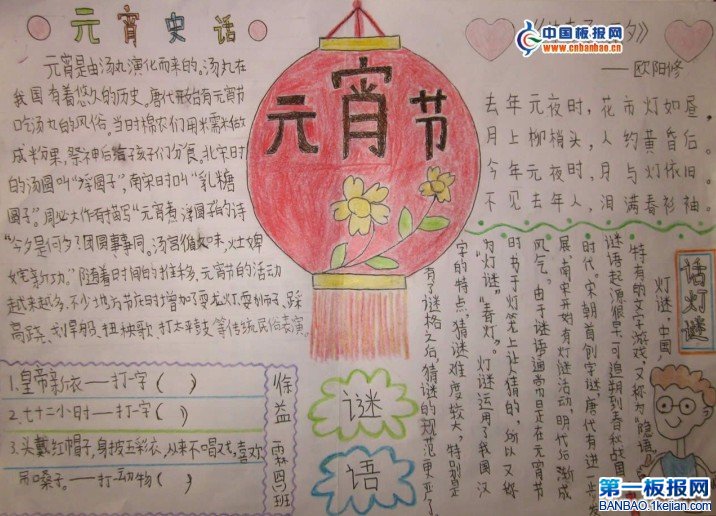 元宵史话
元宵是由汤丸演化而来的。汤丸在
我国有着悠久的历史。唐代形成有元宵节
吃汤丸的风俗。当时棉农们用米需米做
成半穷果,祭神后给孩子们分食。北宋时
的汤圆叫"浮圆子",南宋时叫"乳糖
圆子"。周必大作有描写"元宵煮浮圆子的诗
"今夕是何夕?团圆事事同。汤官
新功。"随着时间的推移,元宵节的活动
越来越多,不少地方节庆时增加了耍龙灯、耍狮子、踩
高跷、划旱船、扭秧歌、打太平鼓等传统民俗表演。
1.皇帝新衣——打一字( )
2.七十二小时——打一字( )
3.头戴红帽子,身披五彩衣,从来不唱戏,喜欢
吊嗓子。——打一动物( )
徐益霖四班
元宵节
谜
语
中国板报网
www.cnbanbao.cn
夕》
——欧阳修
去年元夜时,花市灯如昼。
月上柳梢头,人约黄昏后。
今年元夜时,月与灯依旧。
不见去年人,泪满春衫袖。
话灯谜
灯谜,中国
特有的文字游戏,又称为"隐语"。
谜语起源很早,可追朔到春秋战国
时代。宋朝首创字谜,唐代有进一步
展,南宋开始有灯谜活动,明代后渐成
风气。由于谜语通常用是在元宵节
时书于灯笼上让人猜的,所以又称
为"灯谜"、"春灯"。灯谜运用了我国汉
字的特点,猜谜难度较大,特别是
有了谜格之后,猜谜的规范更严了
第一板报网
BANBAO.1kejian.com